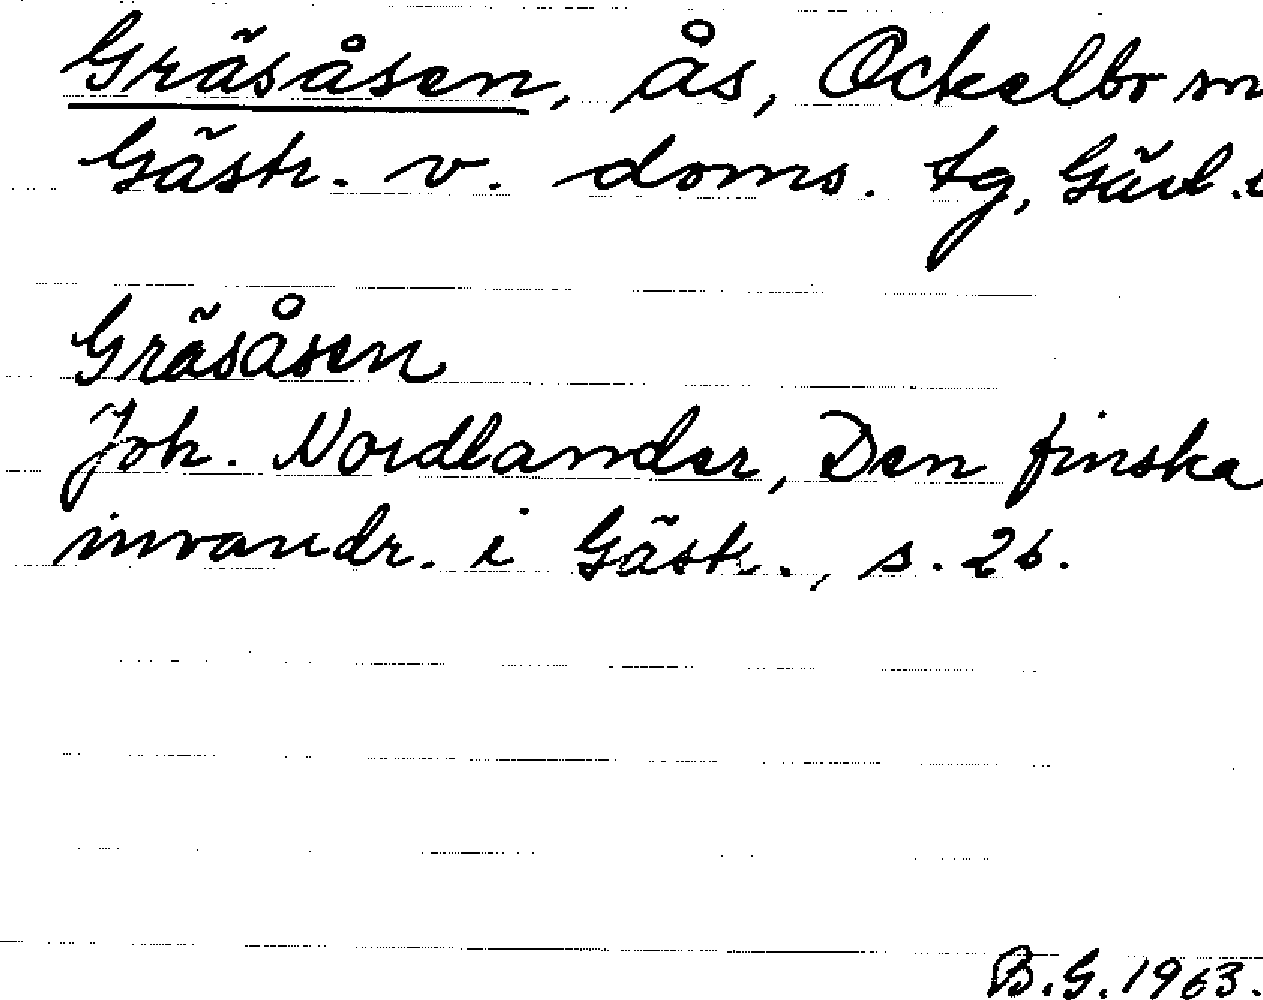 Gräsåsen, ås, Ockelbo sn
Gästr. v. doms. tg, Gävl. l
Gräsåsen
Joh. Nordlander, Den finska
invandr. i Gästr., s. 26.
B.G. 1963.